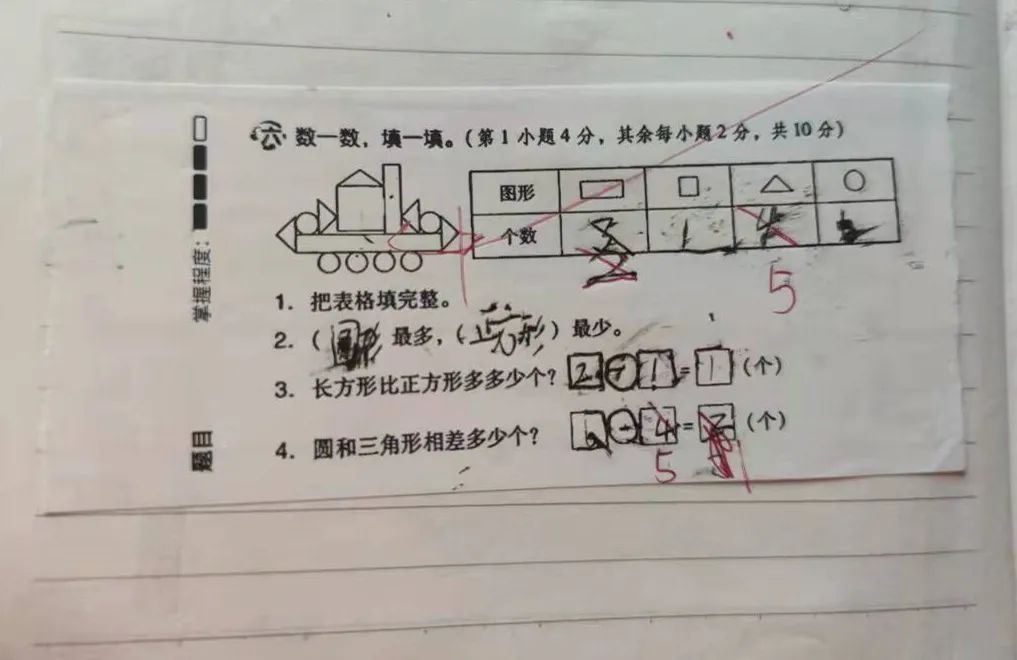 六、数一数，填一填。（第1小题4分，其余每小题2分，共10分）
图形
个数 1 4
5
1. 把表格填完整。
2. （圆形 最多，（正方形）最少。
3. 长方形比正方形多多少个？ 2 - 1 = 1（个）
4. 圆和三角形相差多少个？ - 4 = （个）
5
掌握程度：
题目